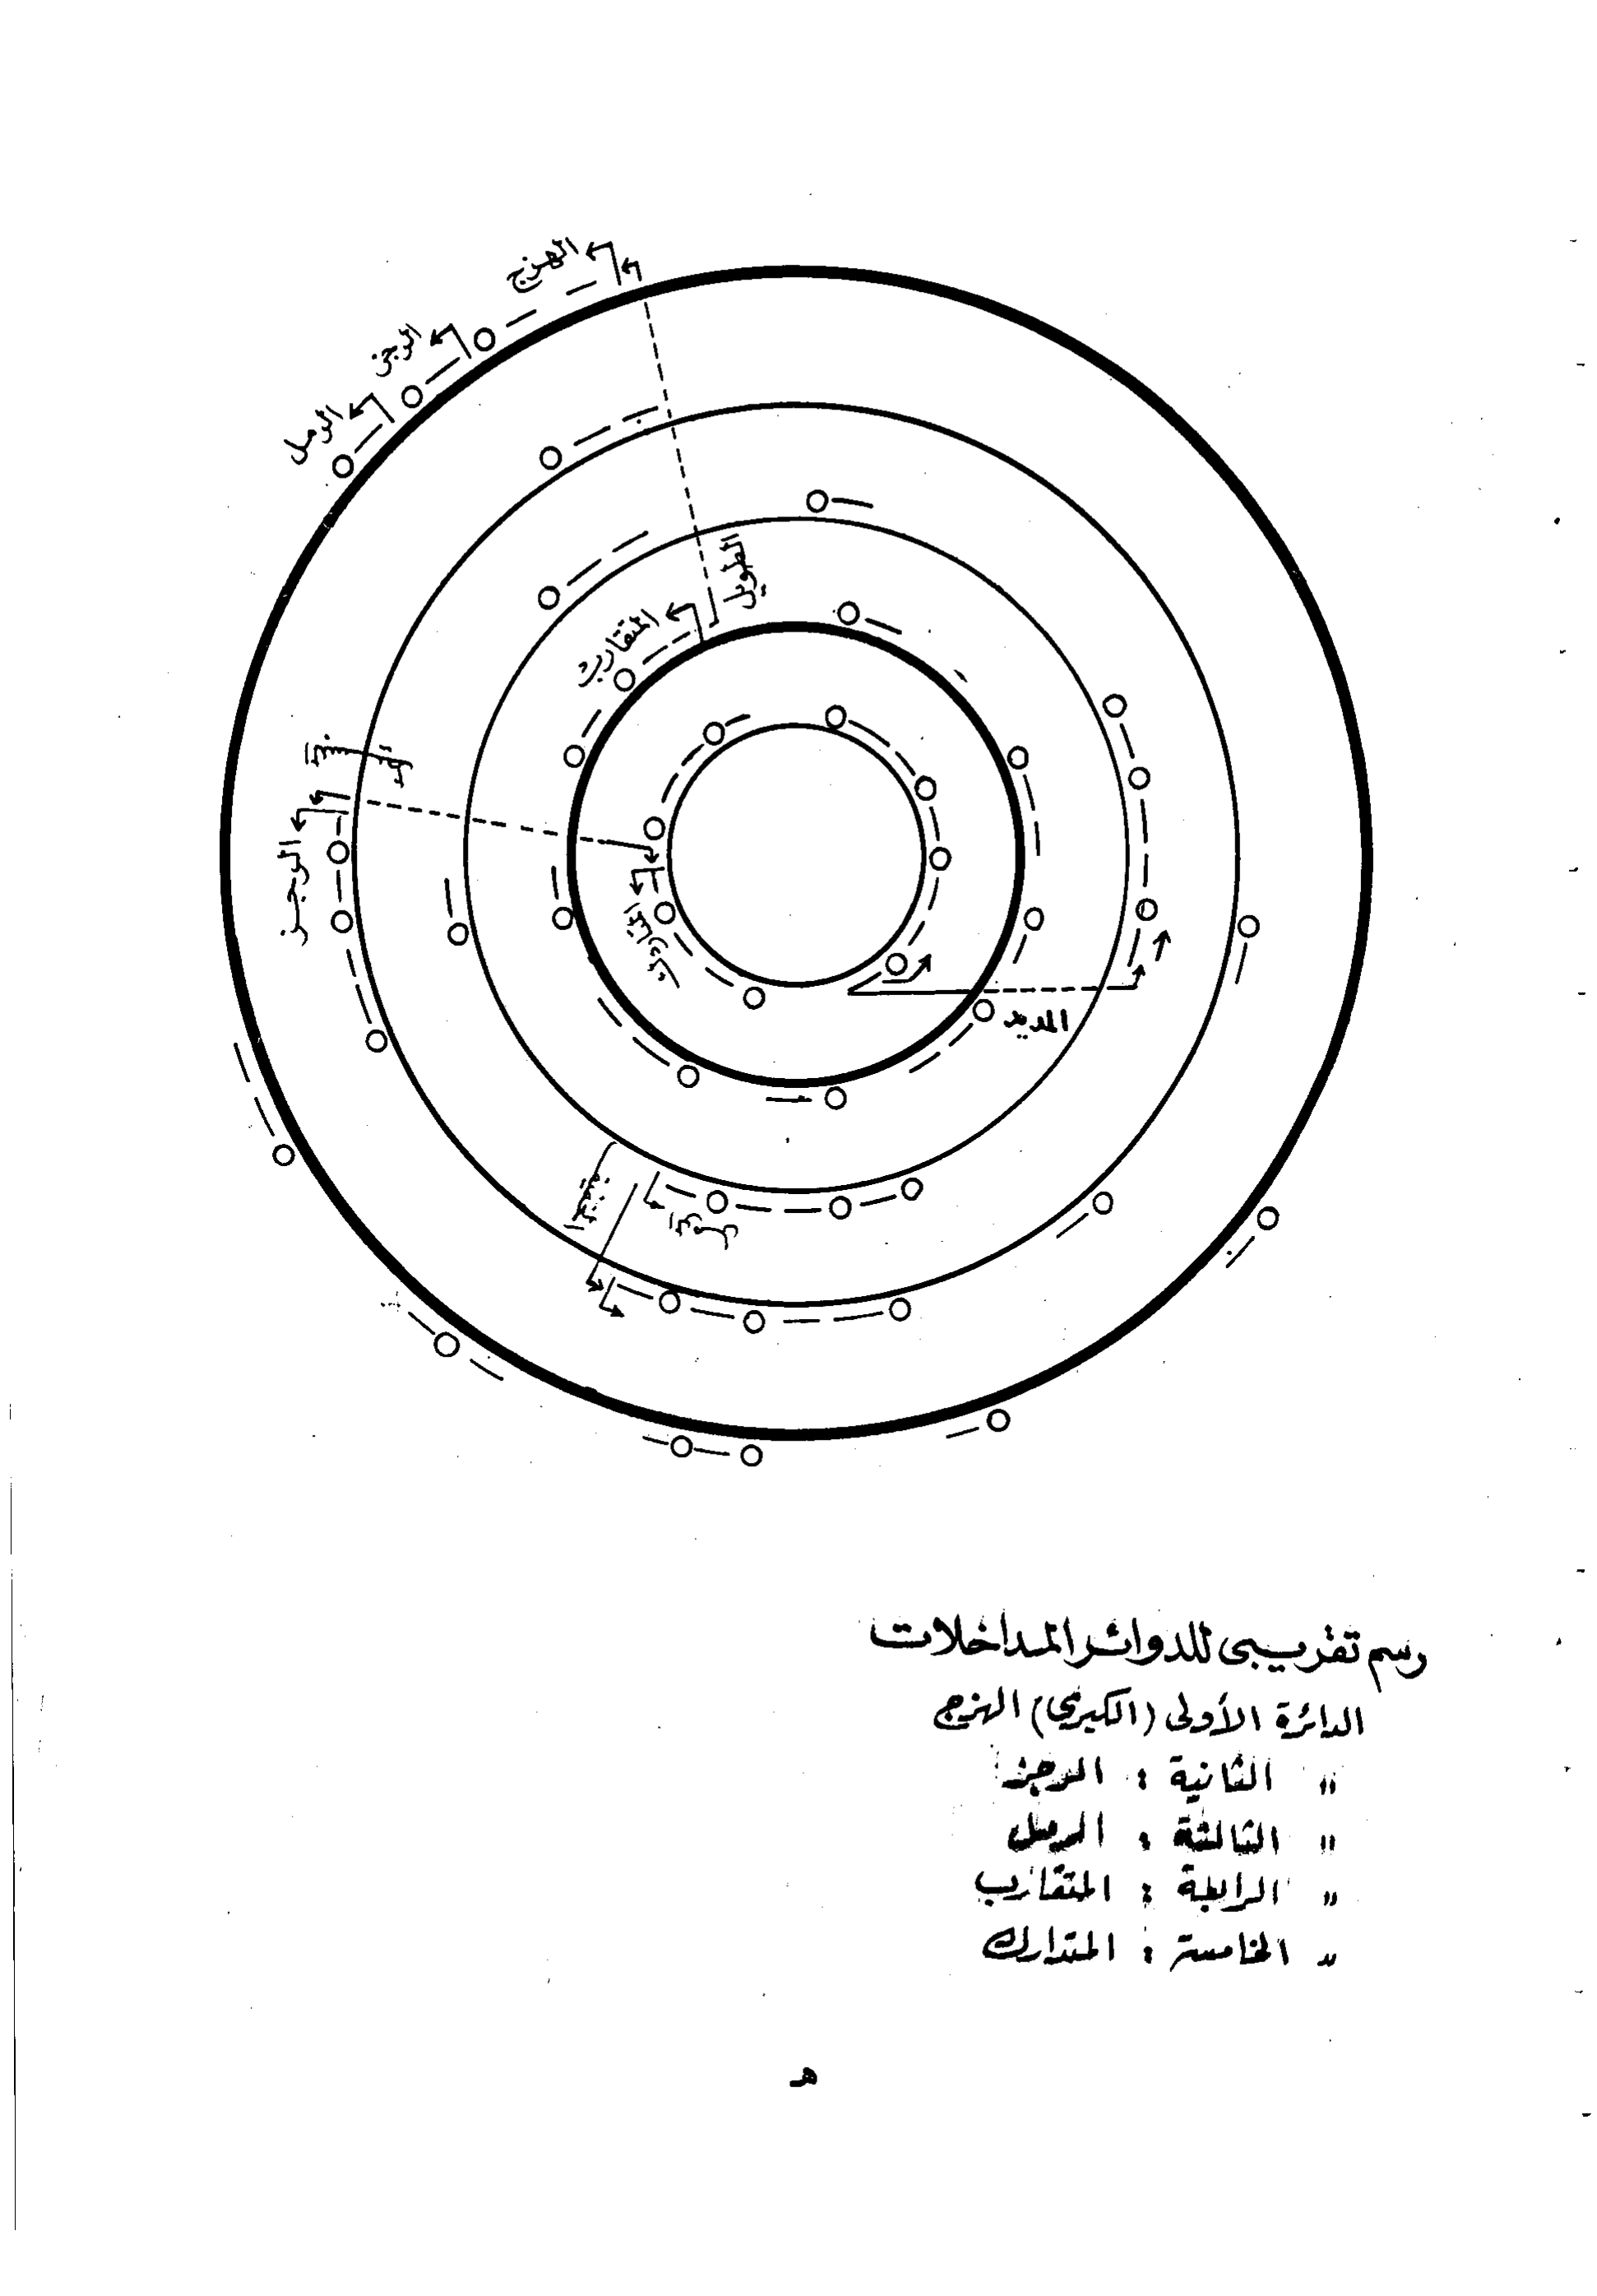 الهزج
الرجز
الرمل
الطويل
المتقارب
البسيط
الرجز
المتدارك
المديد
الرمل
رسم تقريبى للدوائر المداخلات
الدائرة الأولى (الكبرى) الهزج
" الثانية : الرجز
" الثالثة : الرمل
" الرابعة : المتقارب
" الخامسة : المتدارك
هـ